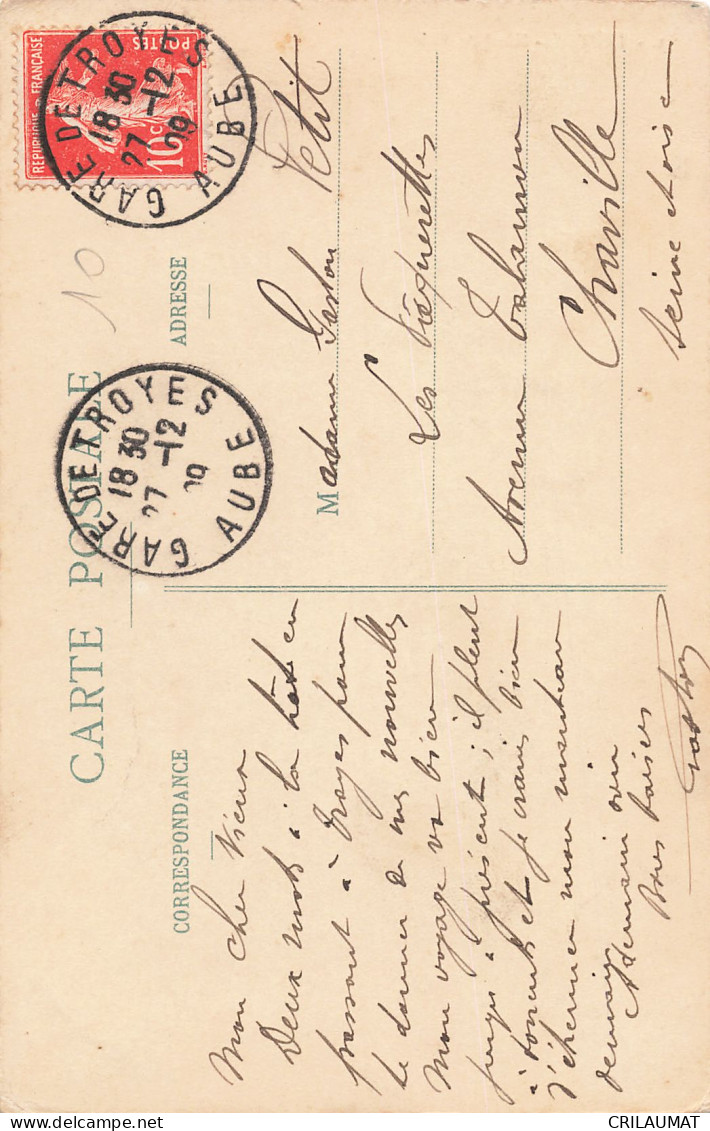 CARTE POSTALE
CORRESPONDANCE
ADRESSE
REPUBLIQUE FRANÇAISE
POSTES
10c
GARE DE TROYES
18 30
27 -12
09
AUBE
GARE DE TROYES
18 30
27 -12
09
AUBE
10
Mon cher Vieux
Deux mots à la hâte en
passant à Troyes pour
te donner de mes nouvelles
Mon voyage va bien
jusqu'à présent ; il pleut
à torrents et je crains bien
d'étrenner mon manteau
Demain soir
Bons baisers
Gaston
Madame Gaston Petit
Les Pâquerettes
Avenue
Chaville
Seine et Oise
CRILAUMAT